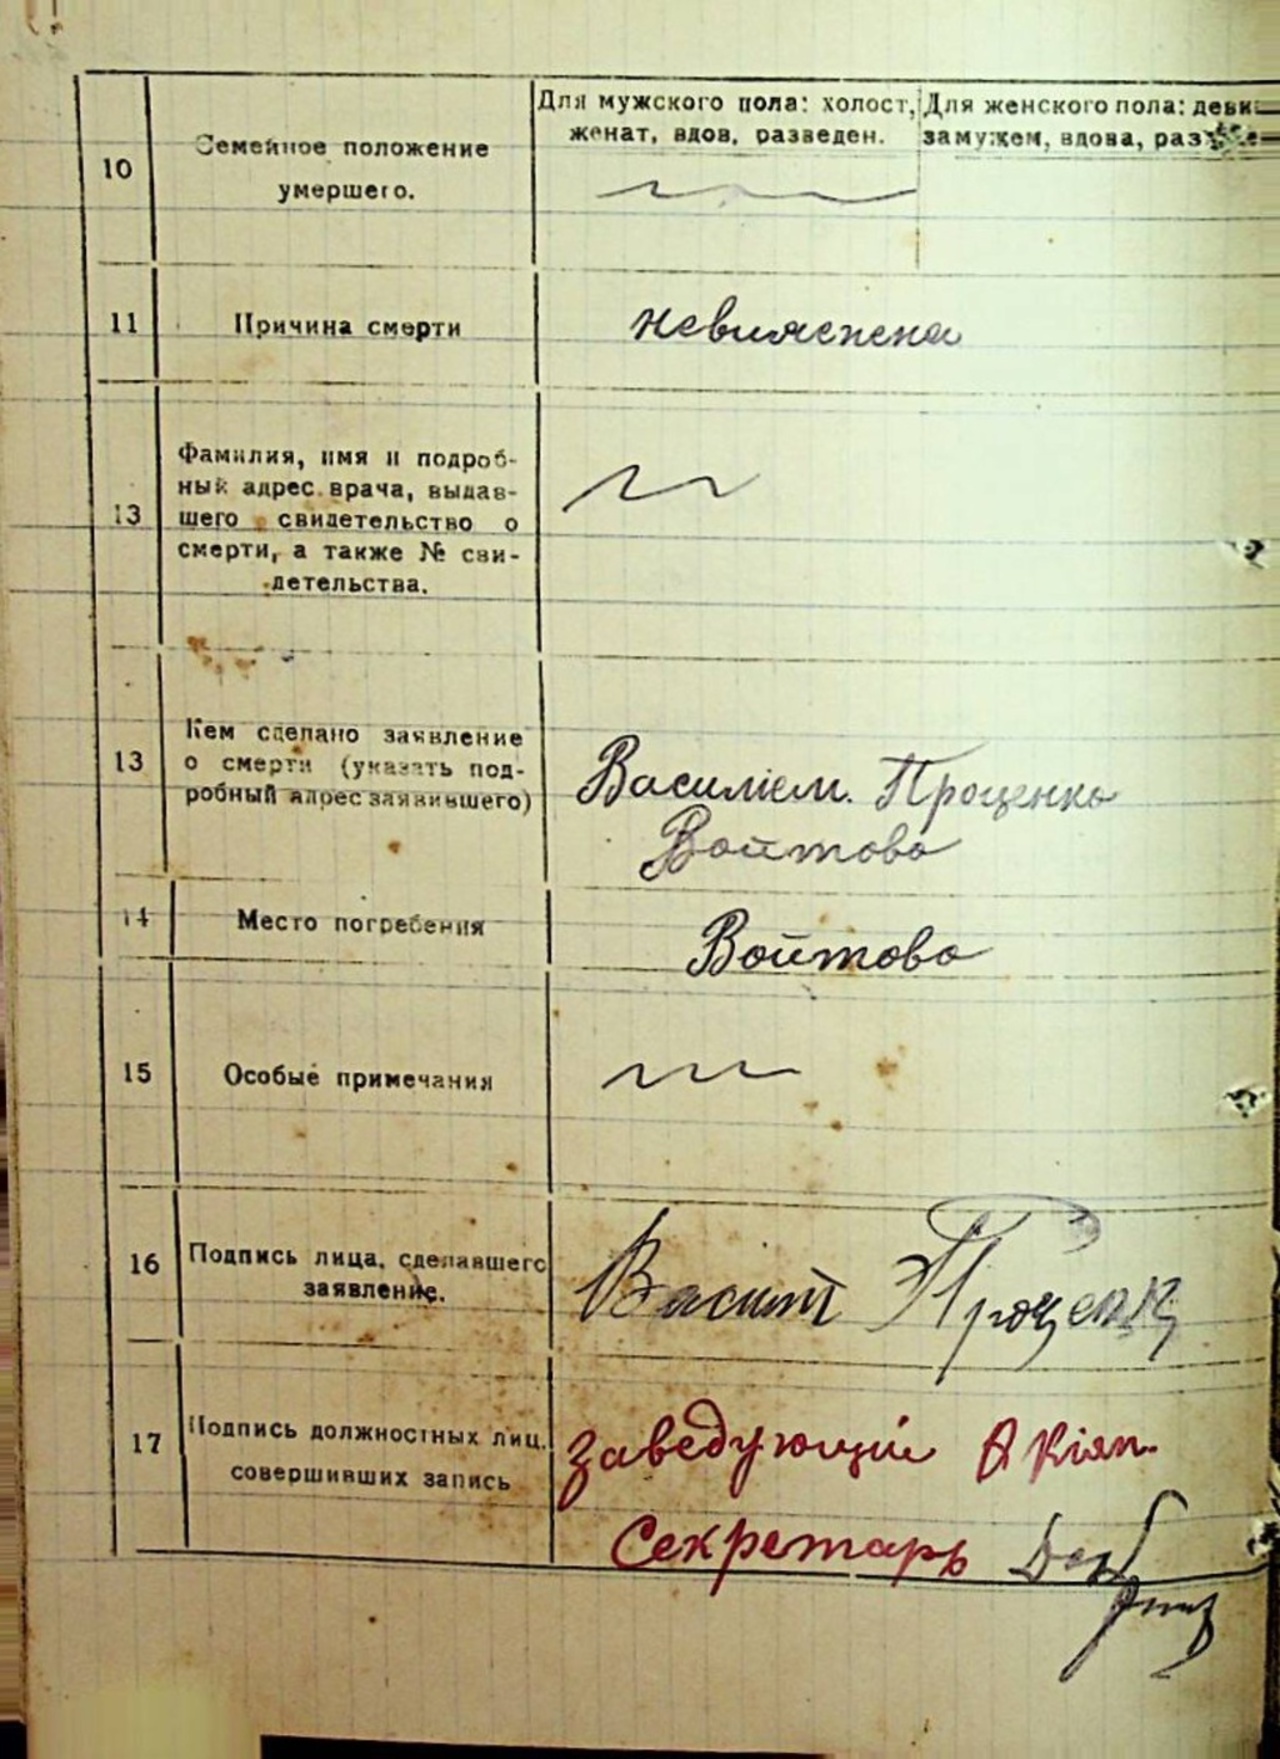 10
Семейное положение
умершего.
Для мужского пола: холост,
женат, вдов, разведен.
Для женского пола: деви
замужем, вдова, раз
11
Причина смерти
невияснена
13
Фамилия, имя и подроб-
ный адрес врача, выдав-
шего свидетельство о
смерти, а также № сви-
детельства.
13
Кем сделано заявление
о смерти (указать под-
робный адрес заявившего)
Василієм. Проценко
Войтово
14
Место погребения
Войтово
15
Особые примечания
16
Подпись лица, сделавшего
заявление.
Проценк
17
Подпись должностных лиц,
совершивших запись
Заведующий
Секретарь